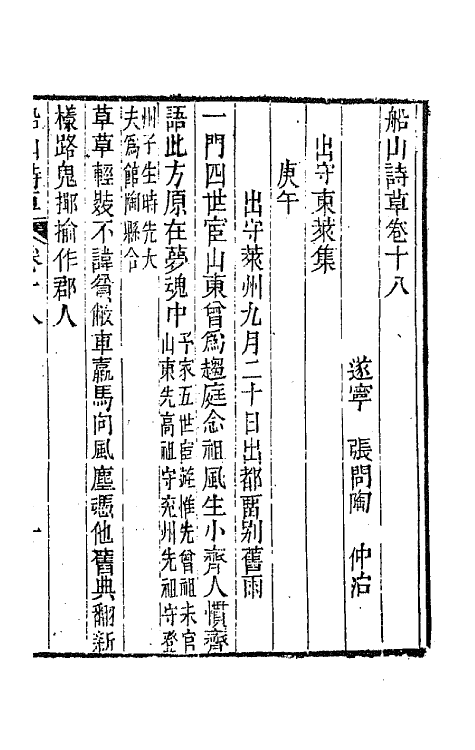 船山詩草卷十八
遂寧 張問陶 仲冶
出守東萊集
庚午
出守萊州九月二十日出都畱别舊雨
一門四世宦山東曾爲趨庭念祖風生小齊人慣齊
語此方原在夢魂中予家五世宦遊惟先曾祖未官
山東先高祖守兖州先祖守登
州子生時先大
夫爲館陶縣令
草草輕裝不諱貧敝車羸馬向風塵憑他舊典翻新
樣路鬼揶揄作郡人
船山詩草 卷十八 一